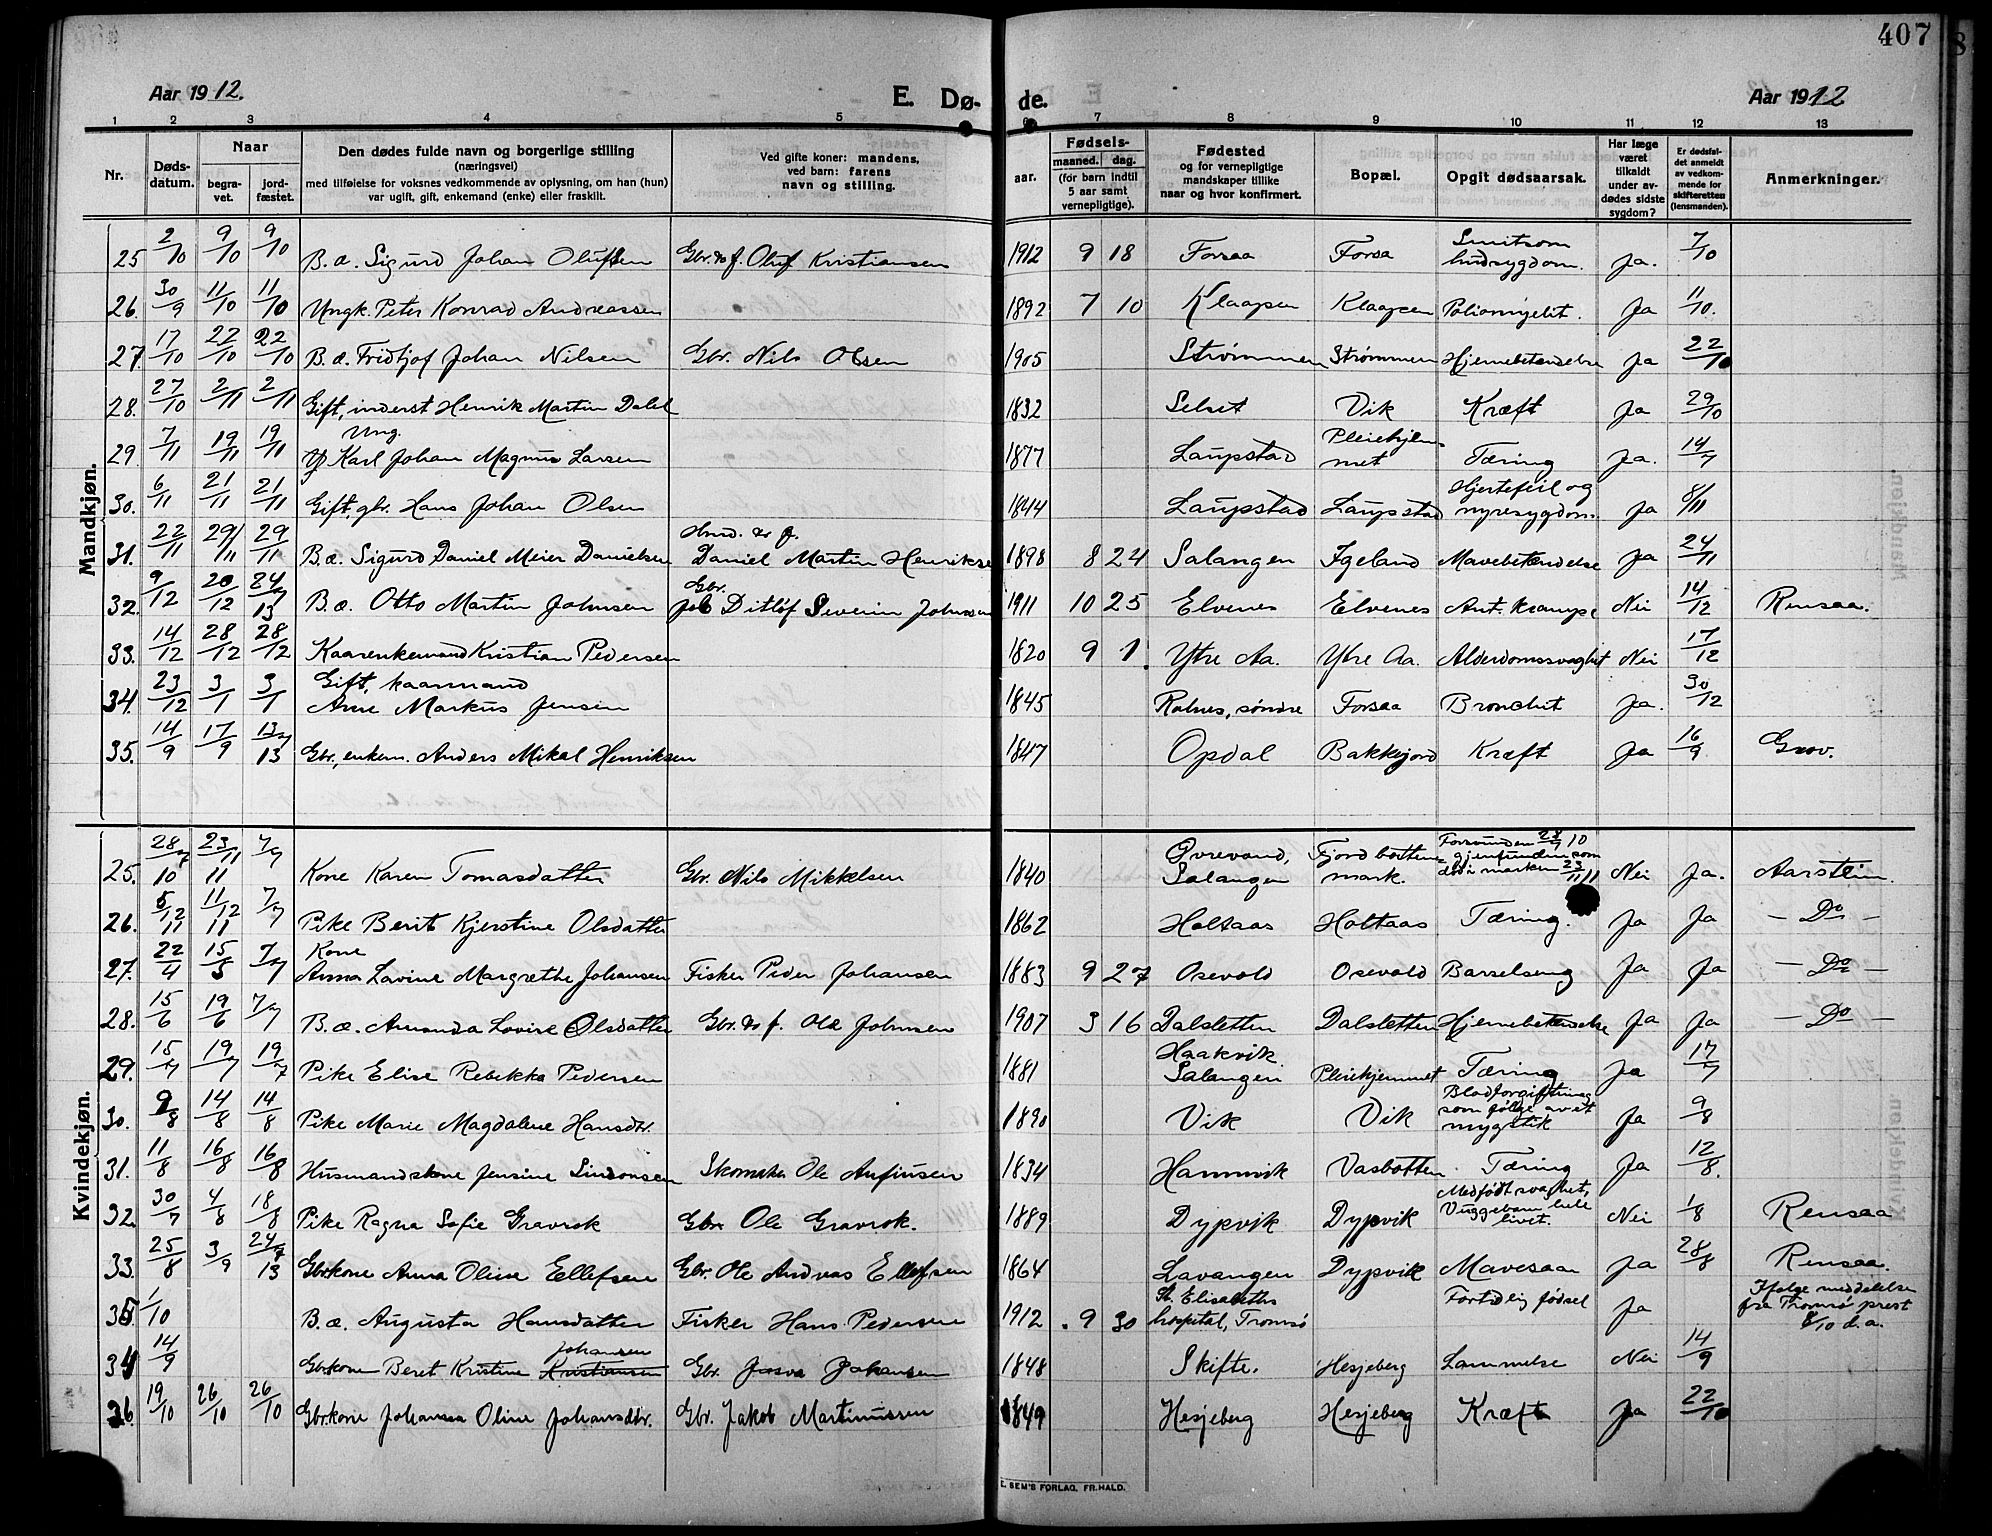 407
Aar 1912.
E. Dø-
de.
Aar 1912
1 2 3 4 5 6 7 8 9 10 11 12 13
Nr.
Døds-
datum.
Naar
begra-
vet.
jord-
fæstet.
Den dødes fulde navn og borgerlige stilling
(næringsvei)
med tilføielse for voksnes vedkommende av oplysning, om han (hun)
var ugift, gift, enkemand (enke) eller fraskilt.
Ved gifte koner: mandens,
ved barn: farens
navn og stilling.
Fødsels-
aar.
maaned. dag.
(for barn indtil
5 aar samt
vernepligtige).
Fødested
og for vernepligtige
mandskaper tillike
naar og hvor konfirmert.
Bopæl.
Opgit dødsaarsak.
Har læge
været
tilkaldt
under av-
dødes sidste
sygdom?
Er dødsfal-
det anmeldt
av vedkom-
mende for
skifteretten
(lensmanden).
Anmerkninger.
Mandkjøn.
25 2/10 9/10 9/10 B. æ. Sigurd Johan Olufsen Gbr. & f. Oluf Kristiansen 1912 9 18 Forsaa Forsa Smitsom hudsygdom. Ja. 7/10
26. 30/9 11/10 11/10 Ungk. Peter Konrad Andreassen 1892 7 10 Klaapen Klaapen Poliomyelit. Ja 11/10.
27. 17/10 22/10 22/10 B. æ. Fridtjof Johan Nilsen Gbr. Nils Olsen 1905 Strømmen Strømmen Hjernebetændelse Ja 22/10
28. 27/10 2/11 2/11 Gift, inderst Henrik Martin Dalel 1832 Selset Vik Kræft Ja 29/10
Ung.
29. 7/11 19/11 19/11 Karl Johan Magnus Larsen 1877 Laupstad Pleiehjemmet Tæring Ja. 14/7
30. 6/11 21/11 21/11 Gift, gbr. Hans Johan Olsen 1844 Laupstad Laupstad Hjertefeil og nyresygdom. Ja 8/11
31. 22/11 29/11 29/11 B. æ. Sigurd Daniel Meier Danielsen Hmd. & f. Daniel Martin Henrikse 1898 8 24 Salangen Igeland Mavebetændelse Ja 24/11
32. 9/12 20/12 24/7 13 B. æ. Otto Martin Johnsen Gbr. Ditløf Severin Johnsen 1911 10 25 Elvenes Elvenes Ant. krampe Nei 14/12 Rensaa.
33. 14/12 28/12 28/12 Kaarenkemand Kristian Pedersen 1820 9 1. Ytre Aa. Ytre Aa. Alderdomssvaghet Nei 17/12
Gift, kaarmand
34. 23/12 3/1 3/1 Arne Markus Jensen 1845 Rolnes, søndre Forsaa Bronchit Ja. 30/12
35. 14/9 17/9 13/7 13 Gbr., enkem. Anders Mikal Henriksen 1847 Opdal Bakkejord Kræft Ja 16/9 Grov.
Kvindekjøn.
25. 28/7 10 23/11 11 7/7 Kone Karen Tomasdatter Gbr. Nils Mikkelsen 1840 Øvrevand, Salangen Fjordbotten mark. Forsvunden 28/7 10 gjenfunden som død i marken 23/11 11 Nei Ja. Aarstein.
26. 5/12 11 11/12 11 7/7 Pike Berit Kjerstine Olsdatter 1862 Holtaas Holtaas Tæring. Ja Ja — Do —
Kone
27. 22/4 15/5 7/7 Anna Lavine Margrethe Johansen Fisker Peder Johansen 1883 9 27 Osevold Osevold Barselseng Ja Ja — Do —
28. 15/6 19/6 7/7 B. æ. Amanda Lovise Olsdatter Gbr. & f. Ole Johnsen 1907 3 16 Dalsletten Dalsletten Hjernebetændelse Ja Ja — Do —
29. 15/7 19/7 19/7 Pike Elise Rebekka Pedersen 1881 Haakvik Salangen Pleiehjemmet Tæring Ja 17/7
30. 9/8 14/8 14/8 Pike Marie Magdalene Hansdtr. 1890 Vik Vik Blodforgiftning som følge av et mygstik Ja 9/8
31. 11/8 16/8 16/8 Husmandskone Jensine Simonsen Skomaker Ole Anfinsen 1834 Hamnvik Vasbotten Tæring Ja 12/8.
32. 30/7 4/8 18/8 Pike Ragna Sofie Gravrok Gbr. Ole Gravrok. 1889 Dypvik Dypvik Medfødt svaghet, Vuggebarn hele livet. Nei 1/8 Rensaa
33. 25/8 3/9 24/7 13 Gbrkone Anna Oline Ellefsen Gbr. Ole Andreas Ellefsen 1864 Lavangen Dypvik Mavesaar Ja 28/8 Rensaa.
35. 1/10 B. æ. Augusta Hansdatter Fisker Hans Pedersen 1912 9 30 St. Elisabeths hospital, Tromsø Fortidlig fødsel Ja Ifølge meddelelse fra Tromsø prest 8/10 d. a.
34 14/9 Gbrkone Beret Kristine Kristiansen Johansen Gbr. Johansen 1848 Skifte. Hesjeberg Lammelse Nei 14/9
36. 19/10 26/10 26/10 Gbrkone Johanna Oline Johansdtr. Gbr. Jakob Martinussen 1849 Hesjeberg Hesjeberg Kræft Ja 22/10
E. SEM'S FORLAG, FR.HALD.